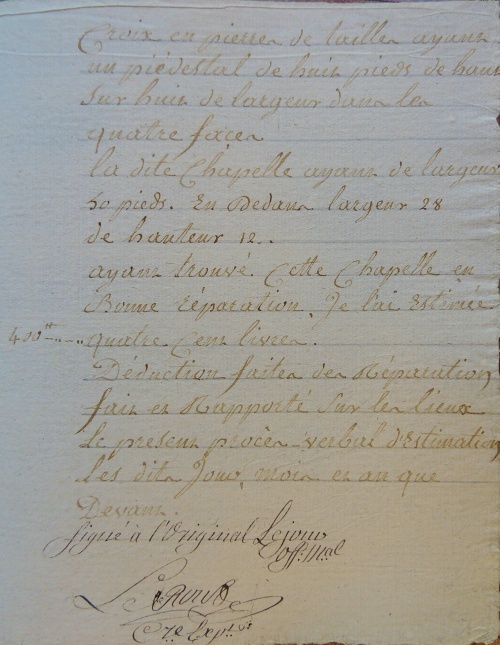 Croix en pierre de tailles ayant
un piédestal de huit pieds de haut
sur huit de largeur dans les
quatre faces
la dite Chapelle ayant de largeur
50 pieds. En Dedans largeur 28
de hauteur 12..
ayant trouvé. Cette Chapelle en
Bonne réparation, Je l'ai Estimée
400# quatre Cent livres.
Déduction faites des Réparation
fait et Rapporté sur les lieux
le present procès verbal d'Estimation
les dits Jour, mois et an que
Devant.
signé à l'Original Lejour
off. mal